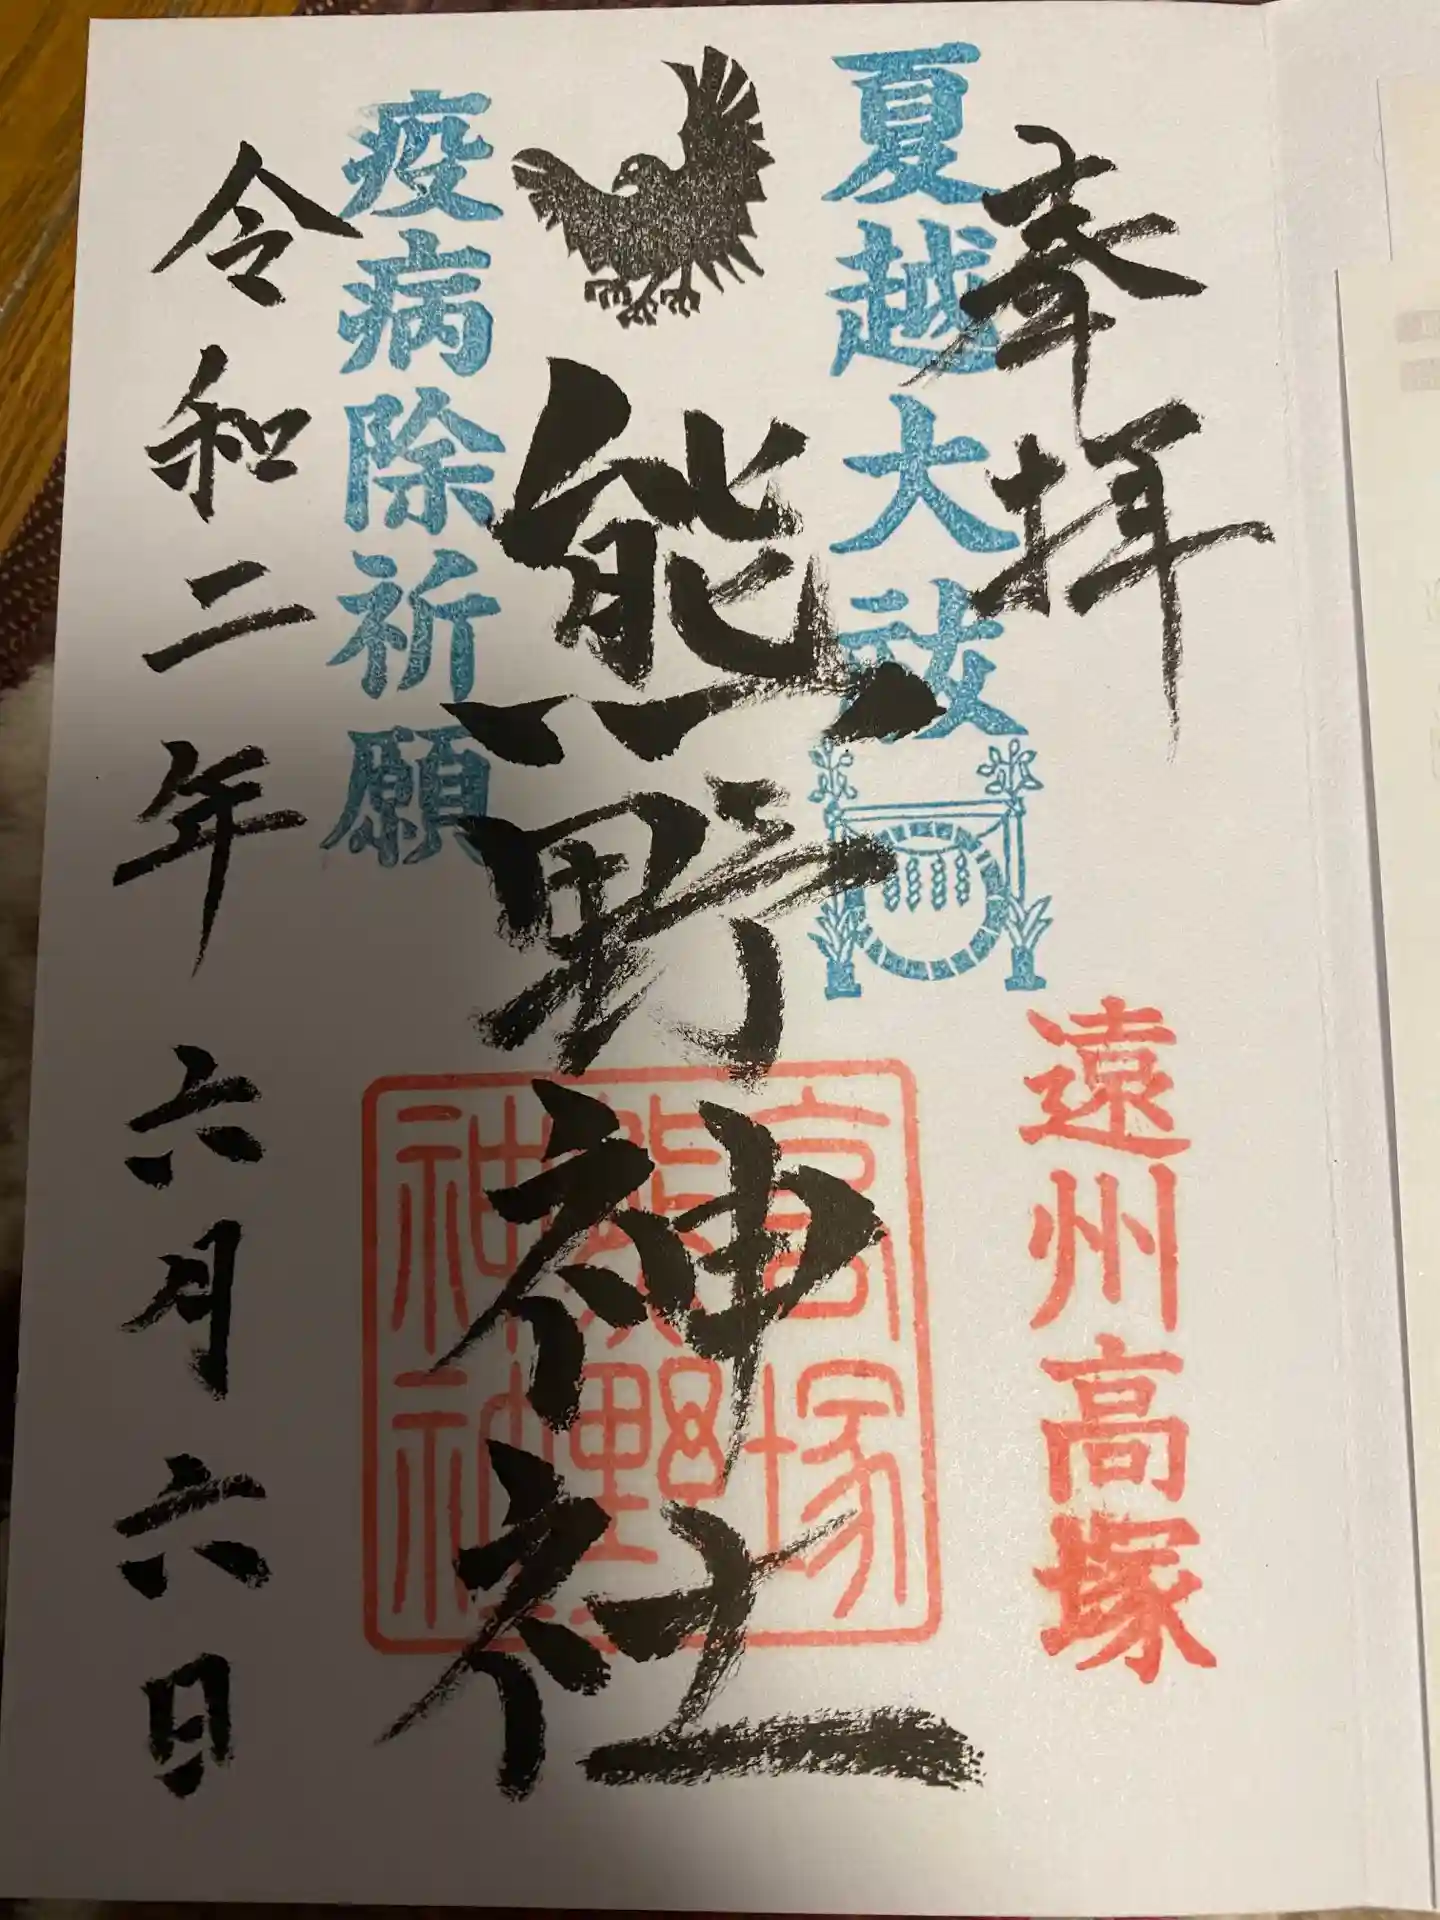 奉拝
遠州高塚
夏越大祓
熊野神社
高塚
熊野
神社
疫病除祈願
令和二年六月六日